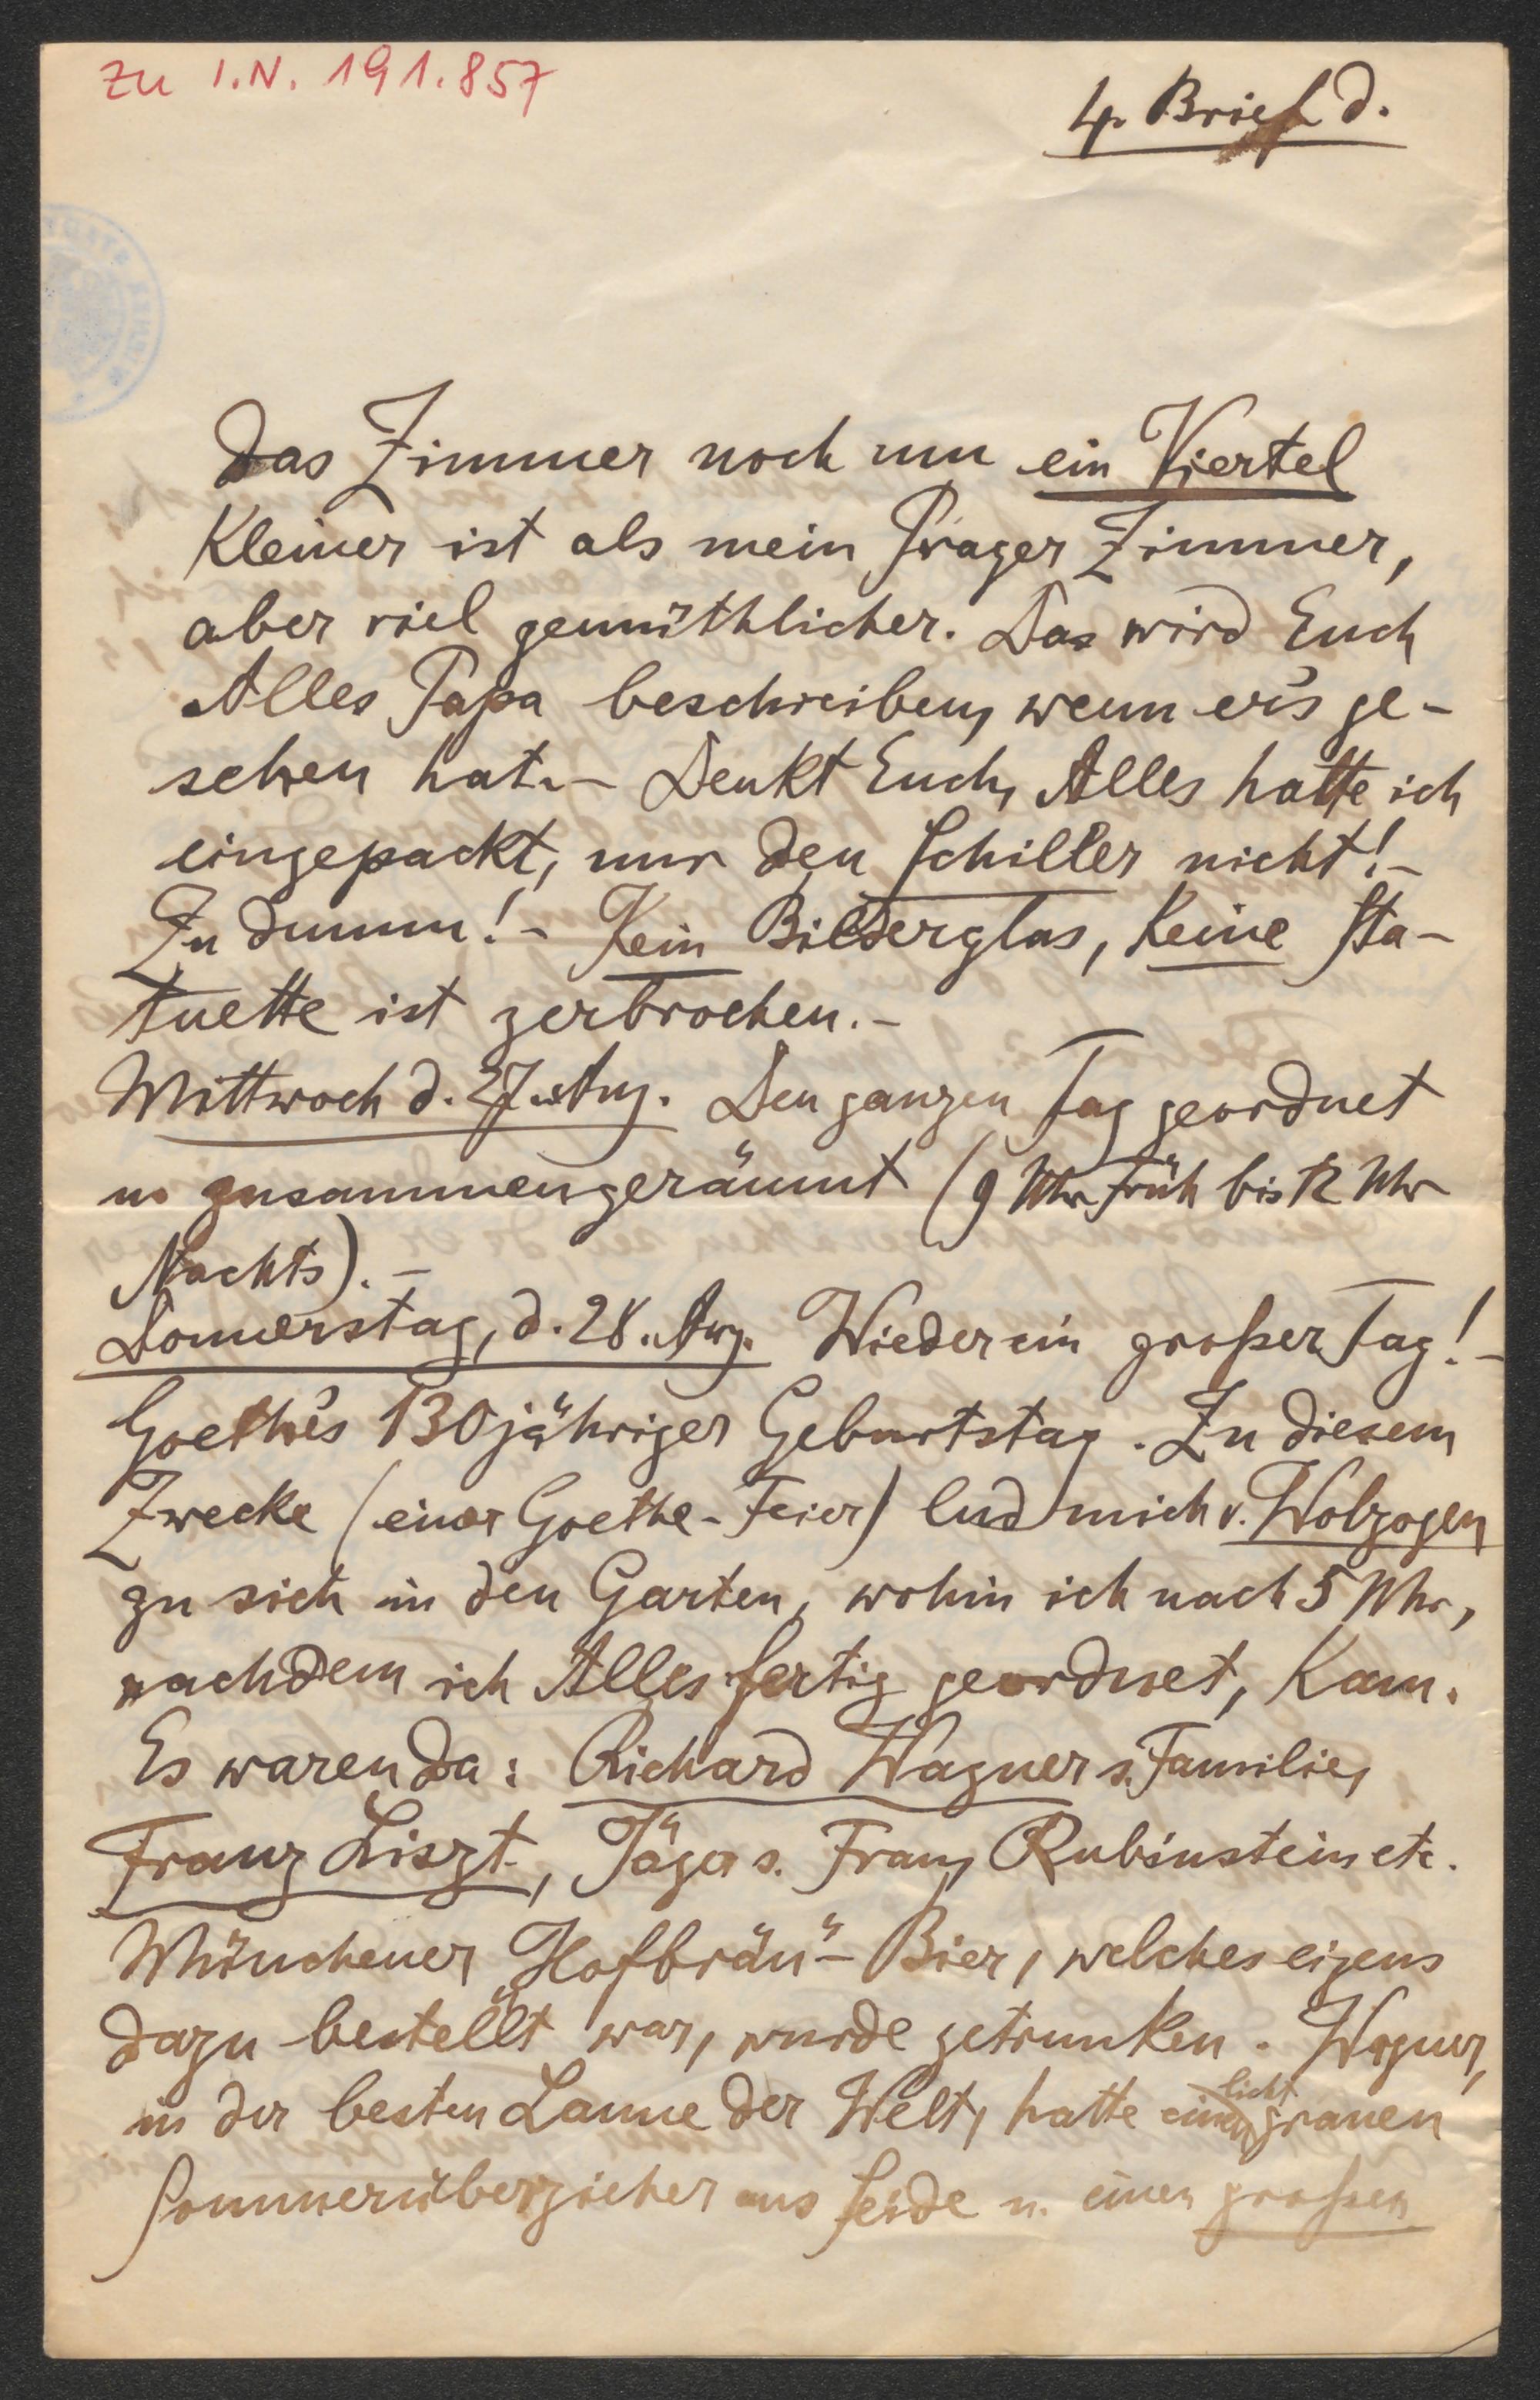 zu I.N. 191.857
4. Brief d.
das Zimmer noch um ein Viertel
kleiner ist als mein Prager Zimmer,
aber viel gemüthlicher. Das wird Euch
Alles Papa beschreiben, wenn er's ge-
sehen hat. – Denkt Euch, Alles hatte ich
eingepackt, nur den Schiller nicht! –
Zu dumm! – Kein Bilderglas, keine Sta-
tuette ist zerbrochen. –
Mittwoch d. 27. Aug. Den ganzen Tag geordnet
u. zusammengeräumt (9 Uhr Früh bis 12 Uhr
Nachts). –
Donnerstag, d. 28. Aug. Wieder ein großer Tag! –
Goethe's 130jähriger Geburtstag. Zu diesem
Zwecke (einer Goethe-Feier) lud mich v. Wolzogen
zu sich in den Garten, wohin ich nach 5 Uhr,
nachdem ich Alles fertig geordnet, kam.
Es waren da: Richard Wagner s. Familie,
Franz Liszt, Jäger s. Frau, Rubinstein etc.
Münchener „Hofbräu“-Bier, welches eigens
dazu bestellt war, wurde getrunken. Wagner,
in der besten Laune der Welt, hatte einen lichtgrauen
Sommerüberzieher aus Seide u. einen großen